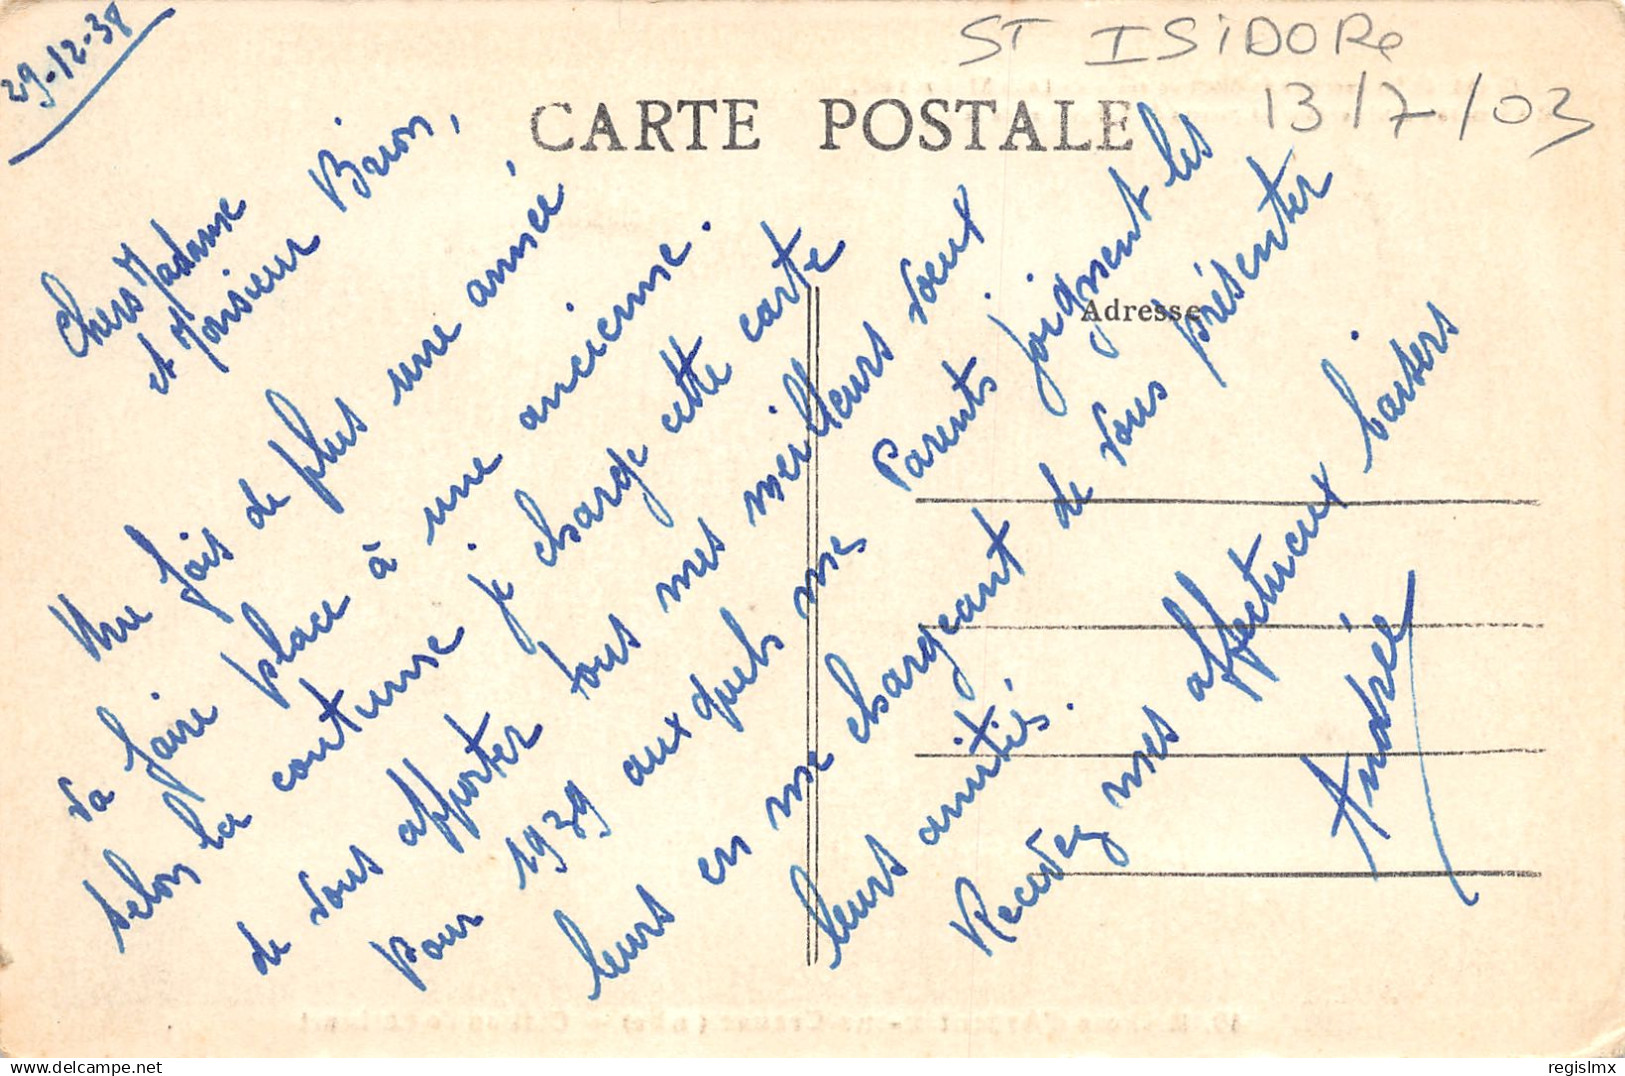 29-12-38
ST ISIDORe
13/7/03
CARTE POSTALE
Chers Madame
et Monsieur Brion,
Une fois de plus une année
va faire place à une ancienne.
Selon la coutume je charge cette carte
de vous apporter tous mes meilleurs vœux
pour 1939 aux quels mes Parents joignent les
leurs en me chargeant de vous présenter
leurs amitiés.
Recevez mes affectueux baisers
Andrée
Adresse
regislmx